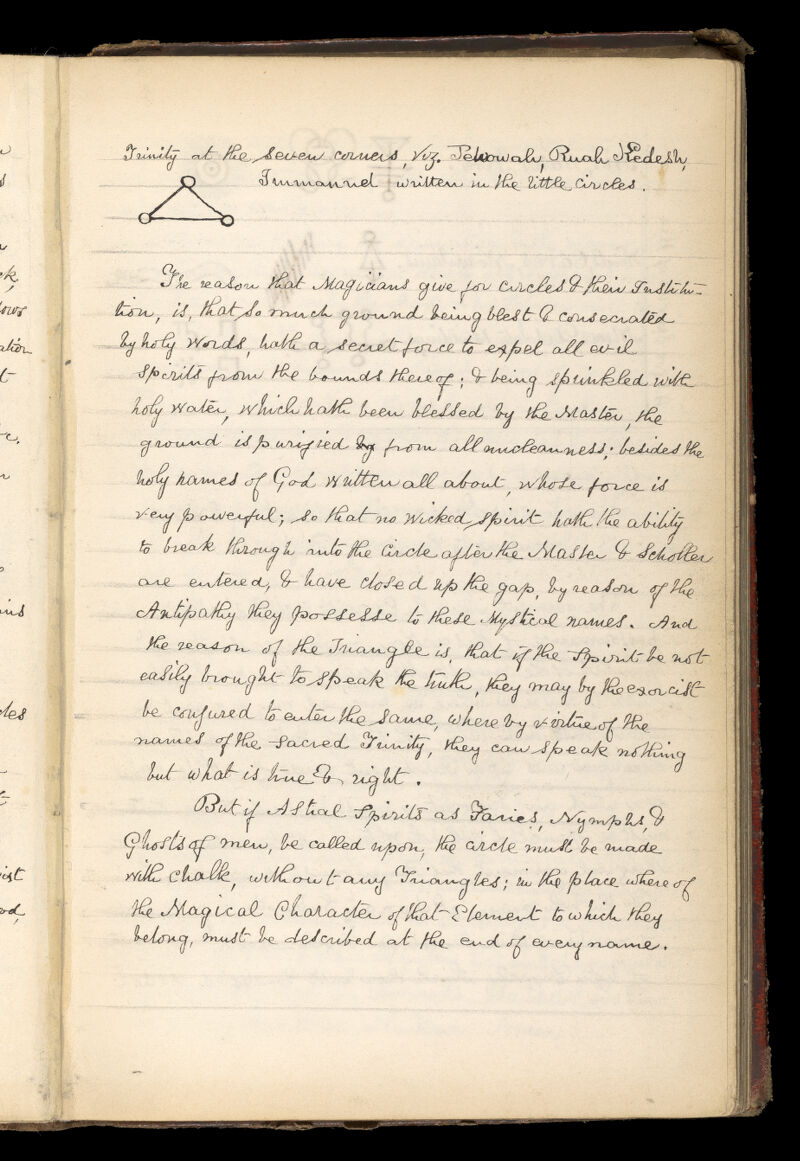 Trinity at the seven corners, viz. Jehowah, Ruah Kedesh,
Immanuel written in the little circles.
The reason that Magicians give for circles & their Institu-
tion, is, that so much ground being blest & consecrated
by holy words, hath a secret force to expel all evil
spirits from the bounds thereof; & being sprinkled with
holy water, which hath been blessed by the Master, the
ground is purified by from all uncleanness; besides the
holy names of God written all about, whose force is
very powerful; so that no wicked spirit hath the ability
to break through into the circle after the Master & Scholler
are entered, & have closed up the gap, by reason of the
Antipathy they possesse to these Mystical names. And
the reason of the Triangle is, that if the Spirit be not
easily brought to speak the truth, they may by the exorcist
be conjured to enter the same, where by virtue of the
names of the sacred Trinity, they can speak nothing
but what is true & right.
But if Astral Spirits as Faries, Nymphs, &
Ghosts of men, be called upon, the circle must be made
with chalk, without any Triangles; in the place whereof
the Magical Character of that Element to which they
belong, must be described at the end of every name.